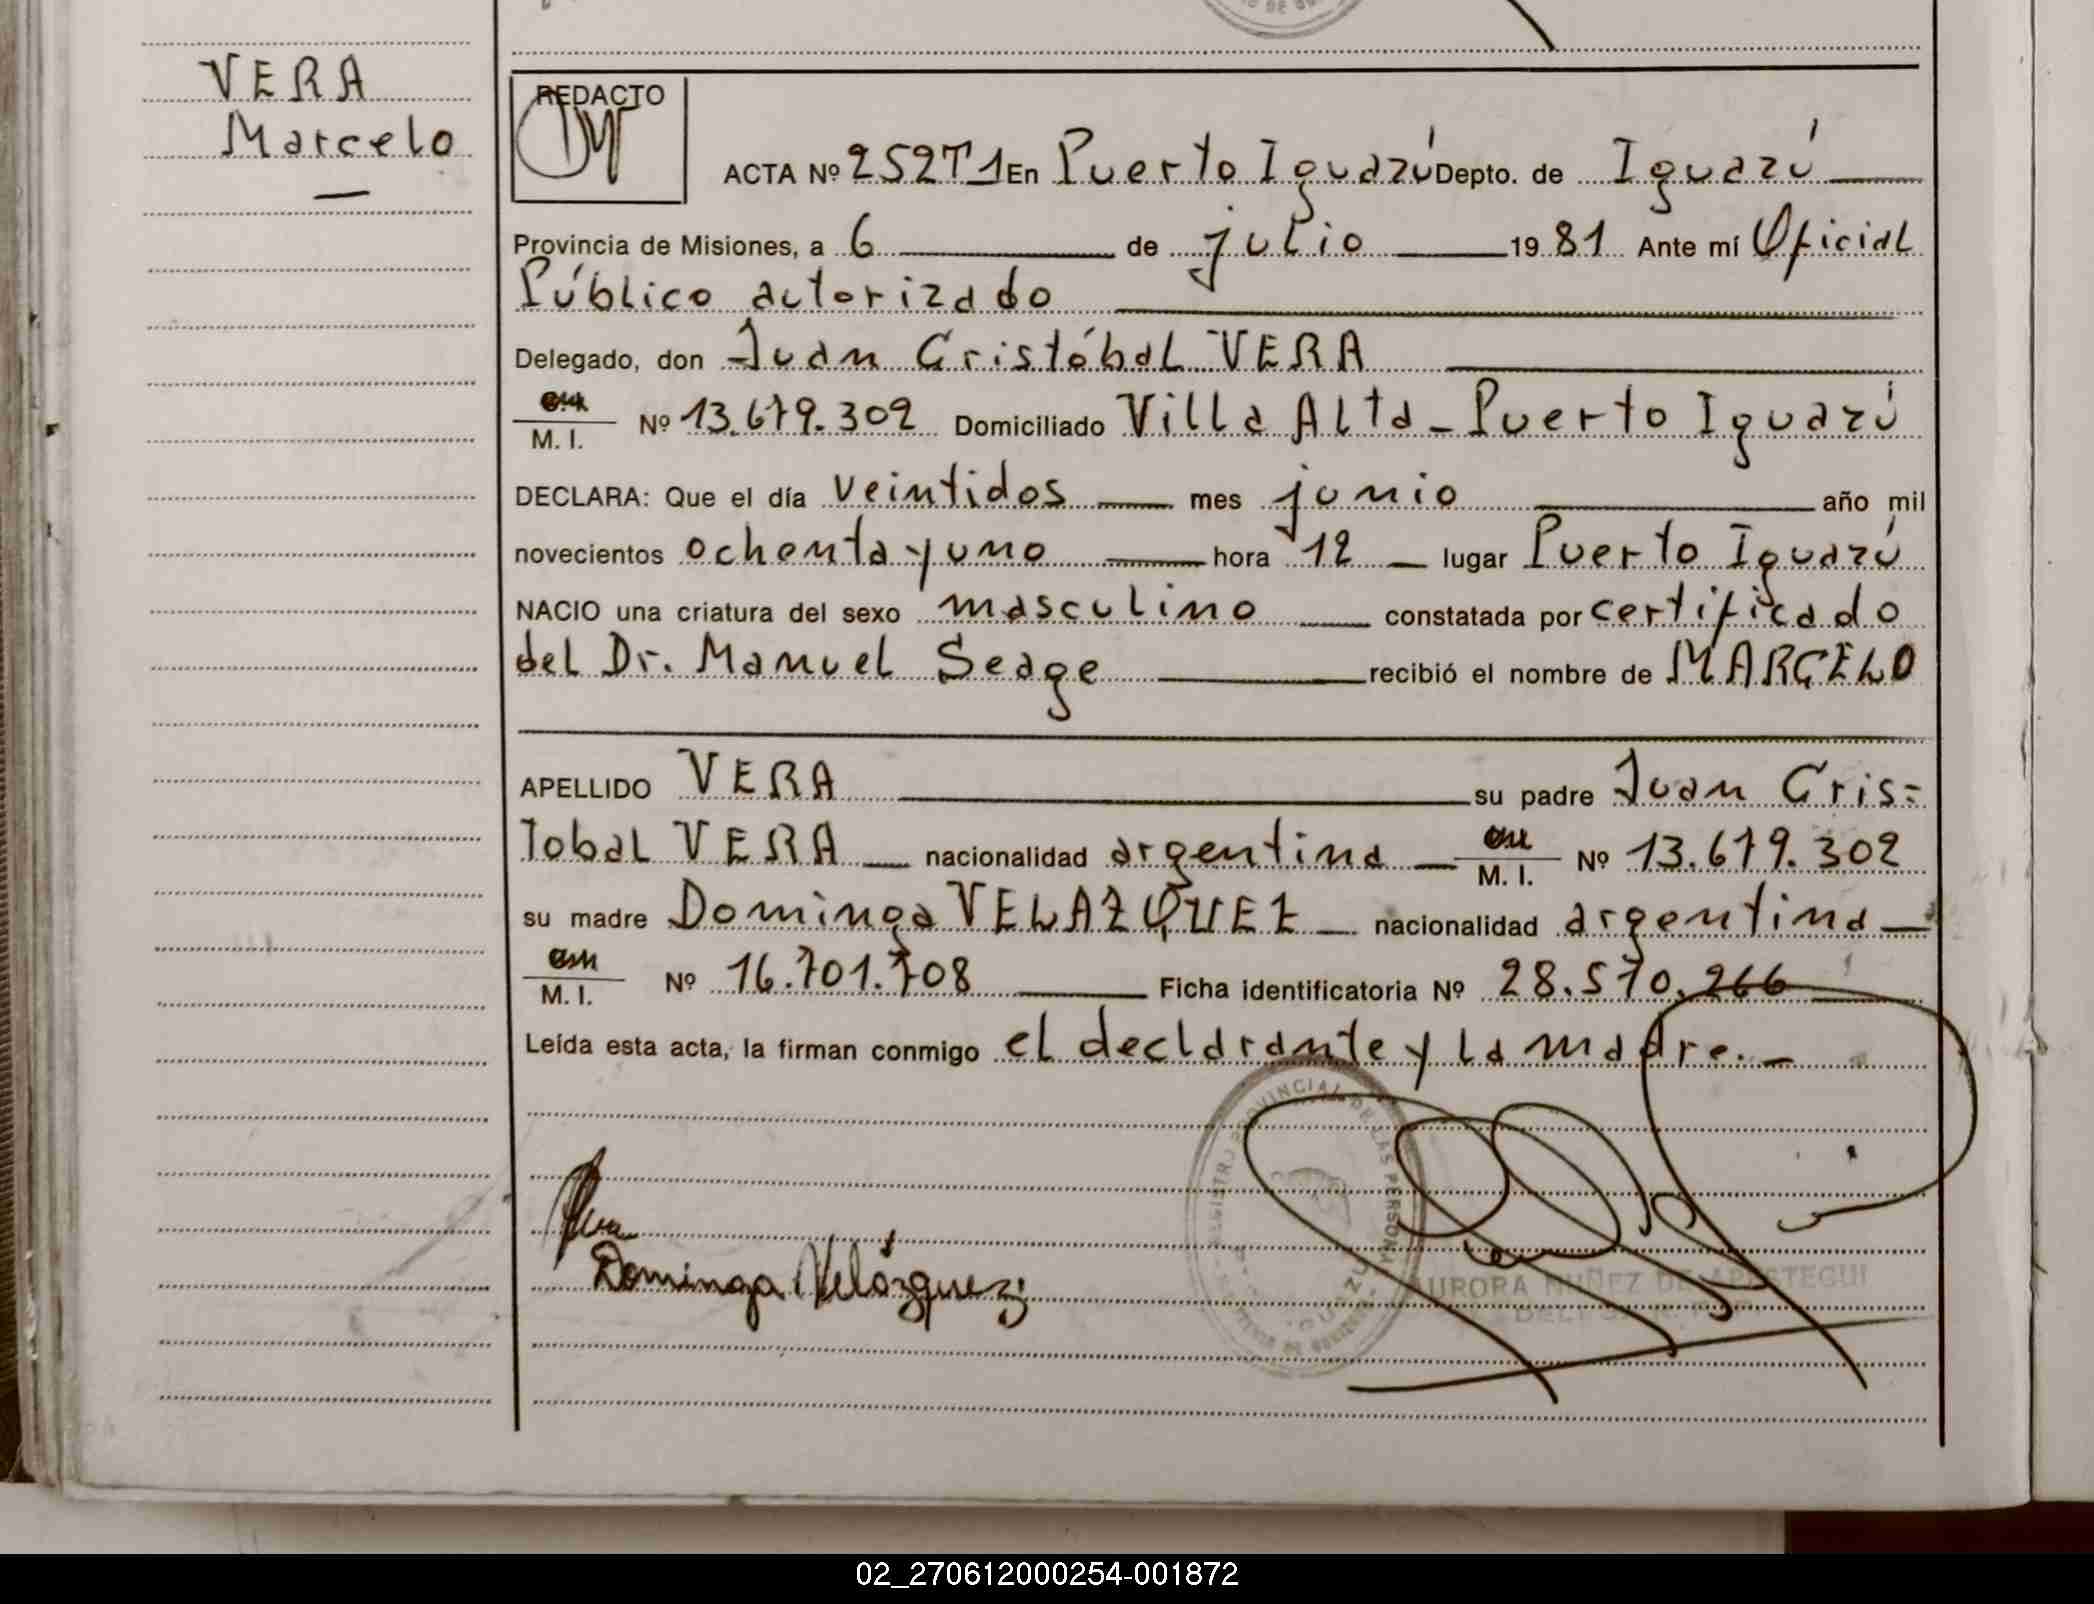 VERA
Marcelo
REDACTO
ACTA Nº 252T1 En Puerto Iguazú Depto. de Iguazú
Provincia de Misiones, a 6 de julio 1981 Ante mí Oficial
Público autorizado
Delegado, don Juan Cristóbal VERA
M. I. Nº 13.679.302 Domiciliado Villa Alta - Puerto Iguazú
DECLARA: Que el día veintidos mes junio año mil
novecientos ochenta y uno hora 12 lugar Puerto Iguazú
NACIO una criatura del sexo masculino constatada por certificado
del Dr. Manuel Seage recibió el nombre de MARCELO
APELLIDO VERA su padre Juan Cris=
tobal VERA nacionalidad argentina M. I. Nº 13.679.302
su madre Dominga VELAZQUEZ nacionalidad argentina
M. I. Nº 16.701.708 Ficha identificatoria Nº 28.570.266
Leída esta acta, la firman conmigo el declarante y la madre.-
REGISTRO PROVINCIAL DE LAS PERSONAS
Dominga Velázquez
AURORA NUÑEZ DE APESTEGUI
02_270612000254-001872